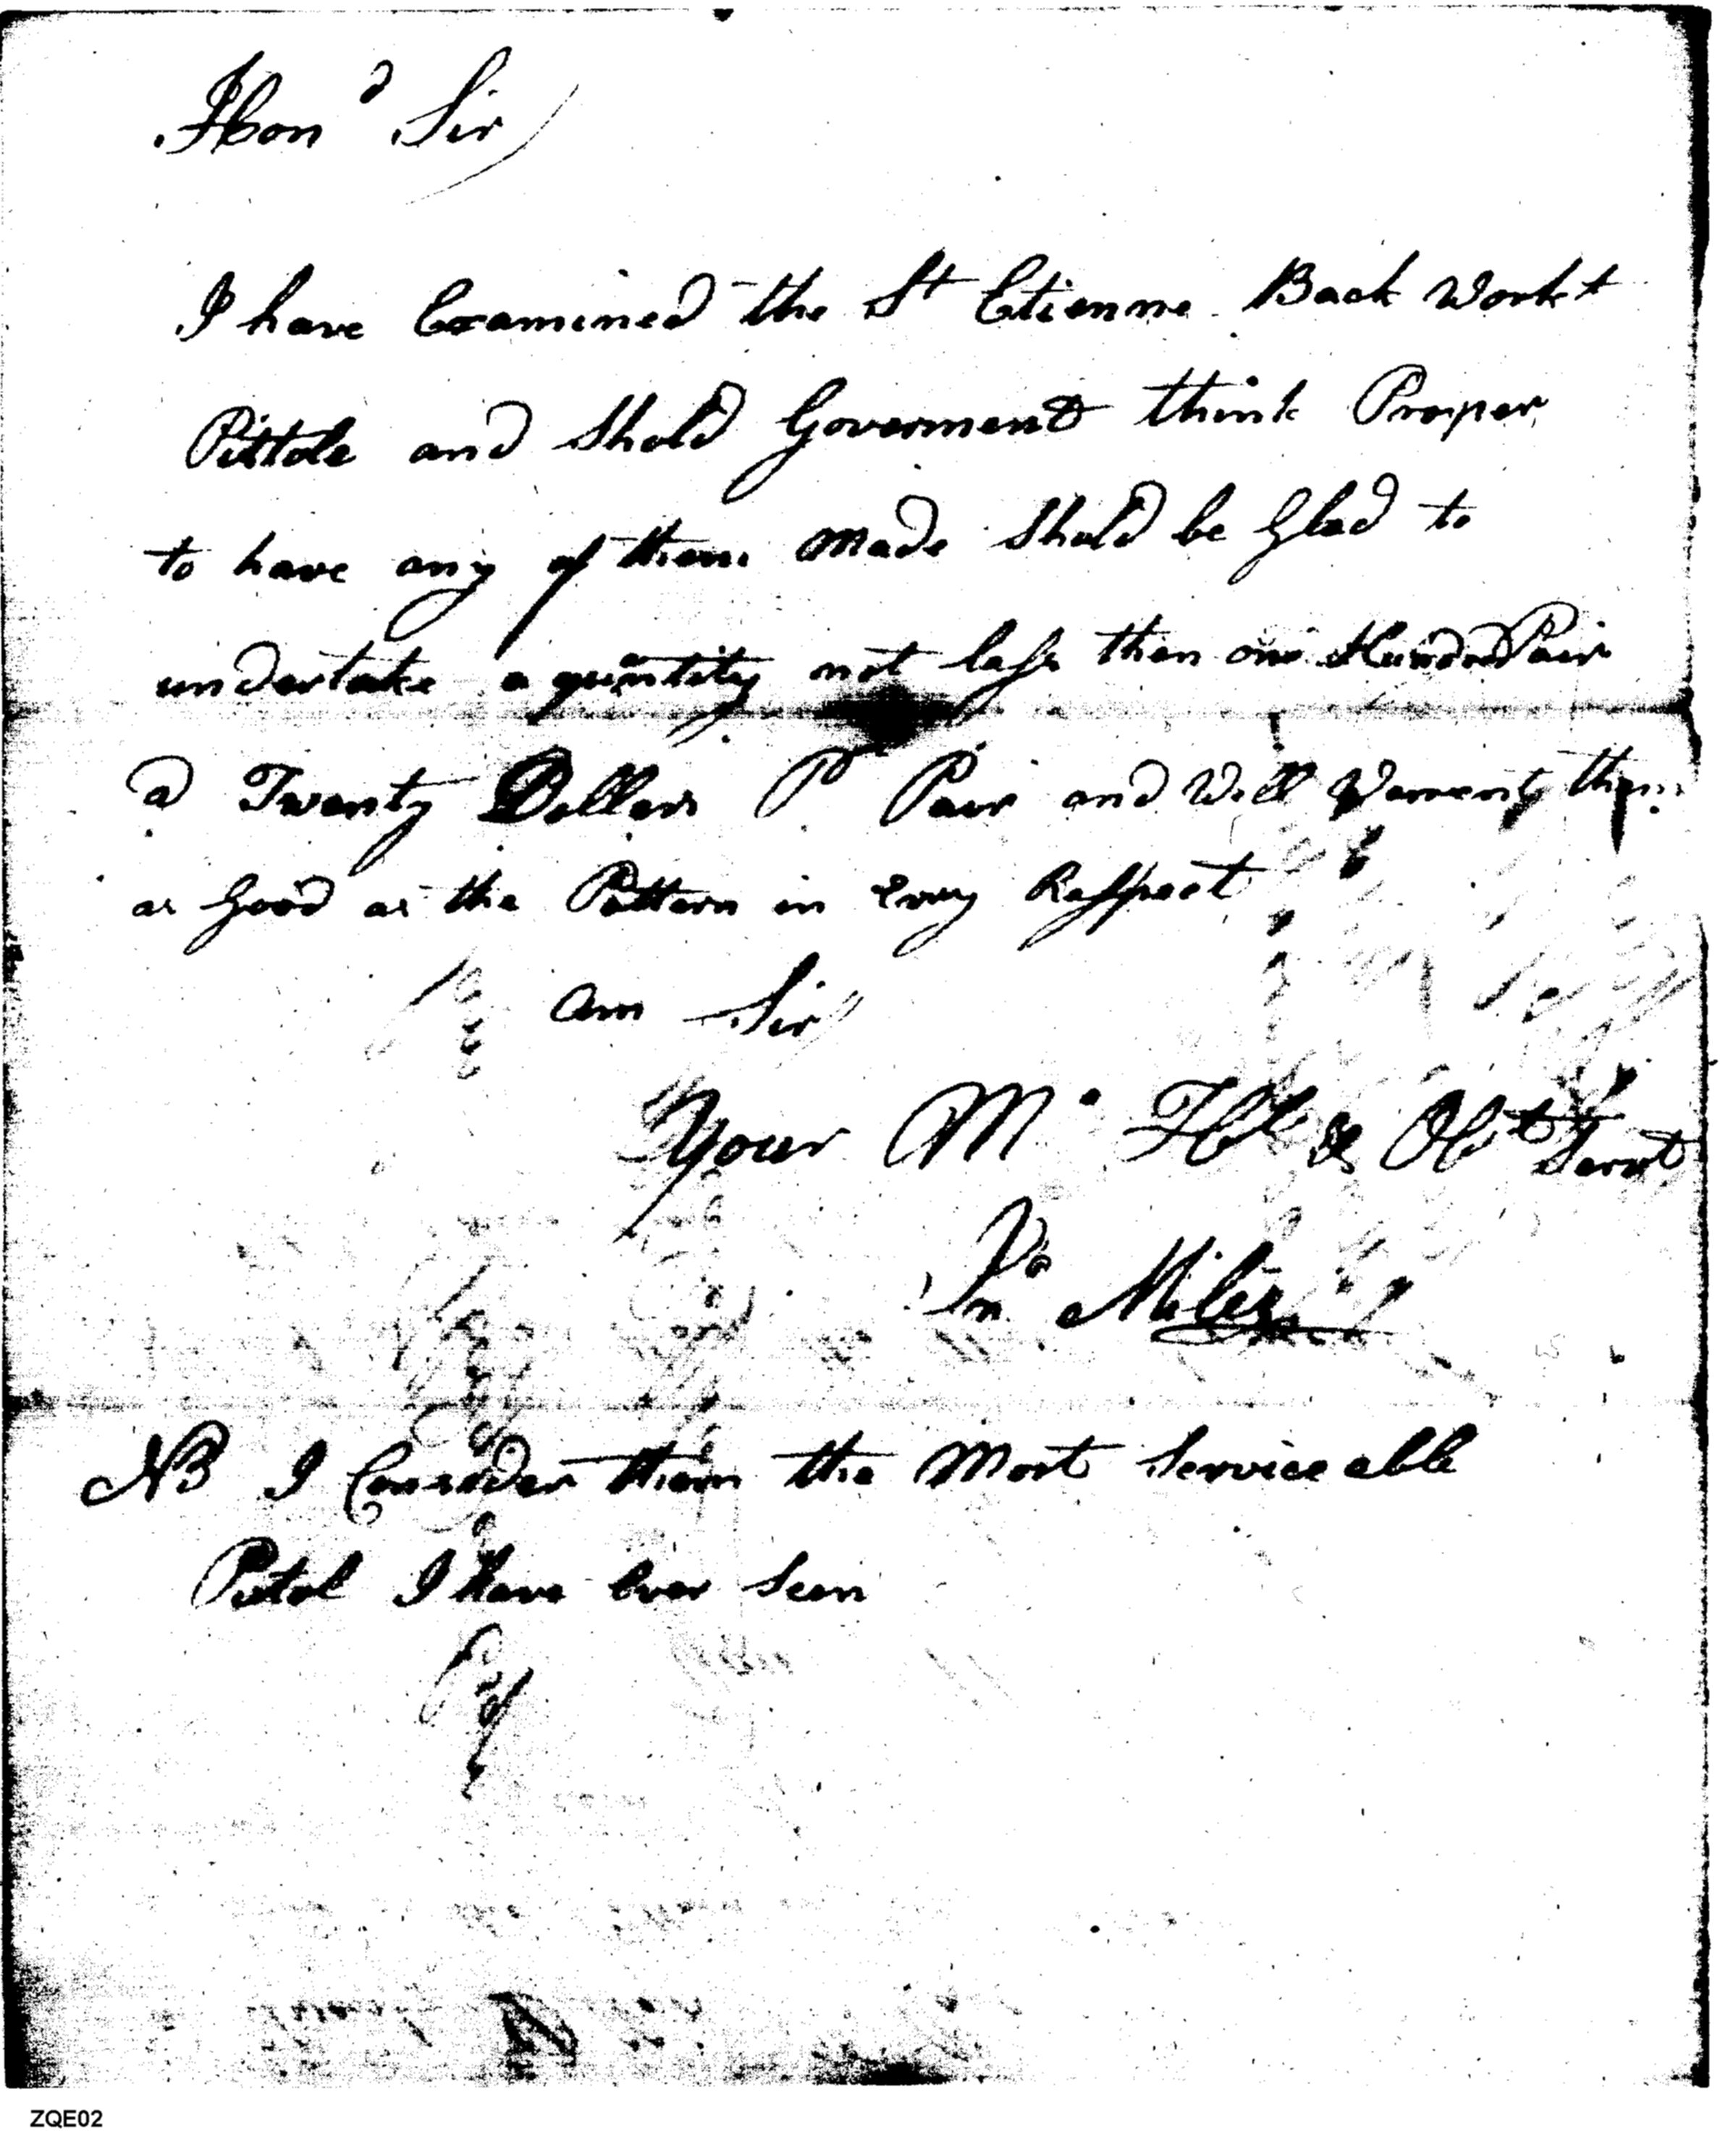 Hond Sir
I have Examined the St Etienne Back Workt
Pistole and Shold Goverment think Proper
to have any of them made Shold be Glad to
undertake a quantity not less then one Hundred Pair
a Twenty Dollars Pr Pair and Will Warrenty them
as Good as the Pattern in Evry Respect
am Sir
Your Mo Hbl & Obt Servt
Jno Miles
NB I Consider them the Most Serviceable
Pistol I Have Ever Seen
ZQE02